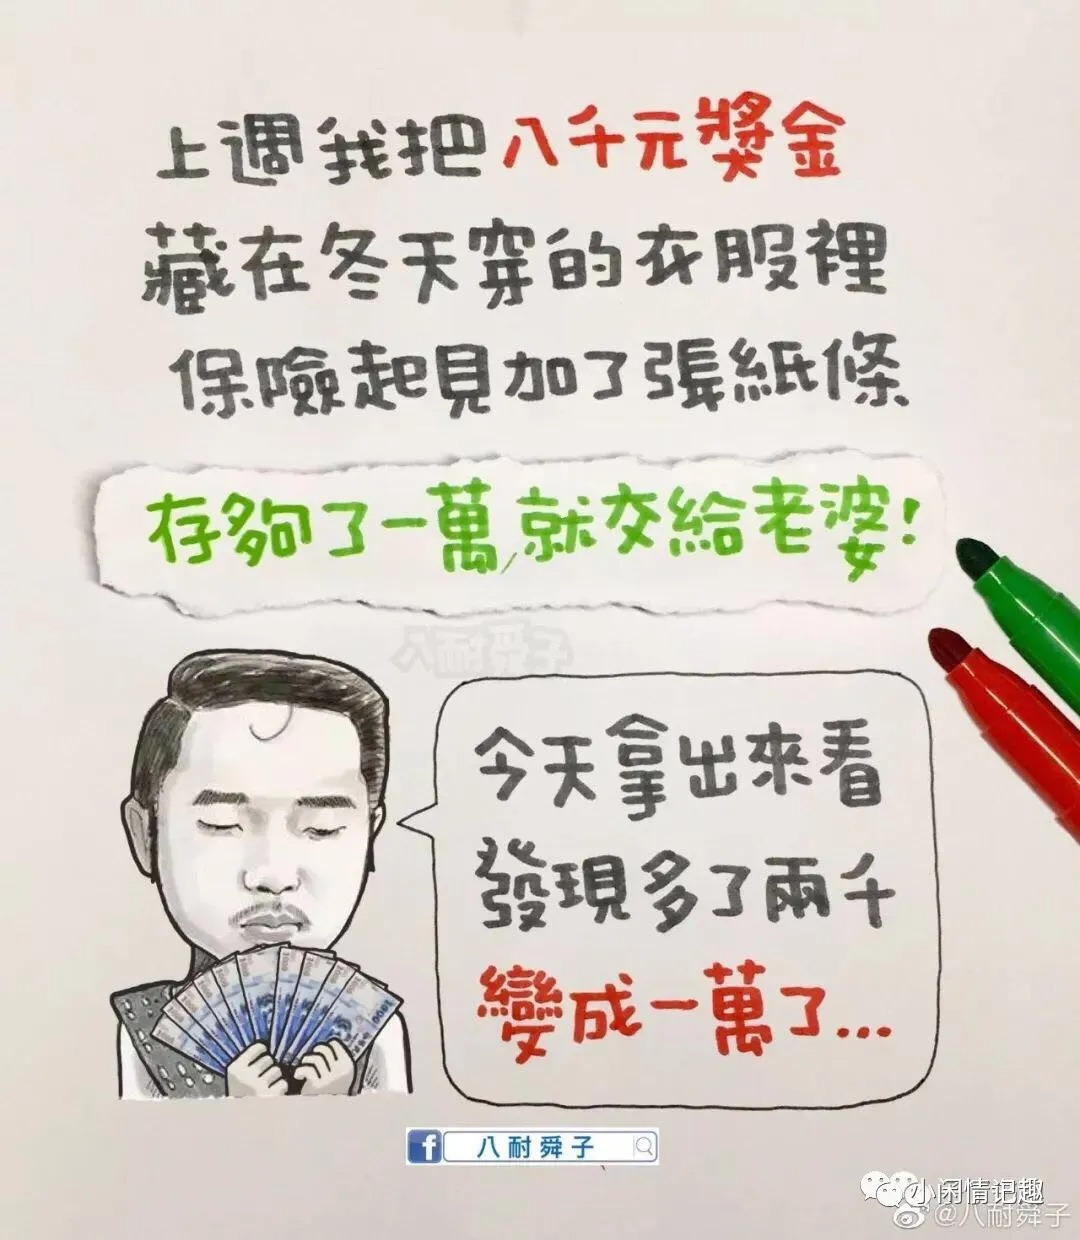 上週我把八千元獎金
藏在冬天穿的衣服裡
保險起見加了張紙條
存夠了一萬,就交給老婆!
八耐舜子
今天拿出來看
發現多了兩千
變成一萬了...
f 八耐舜子
小闲情记趣
@八耐舜子